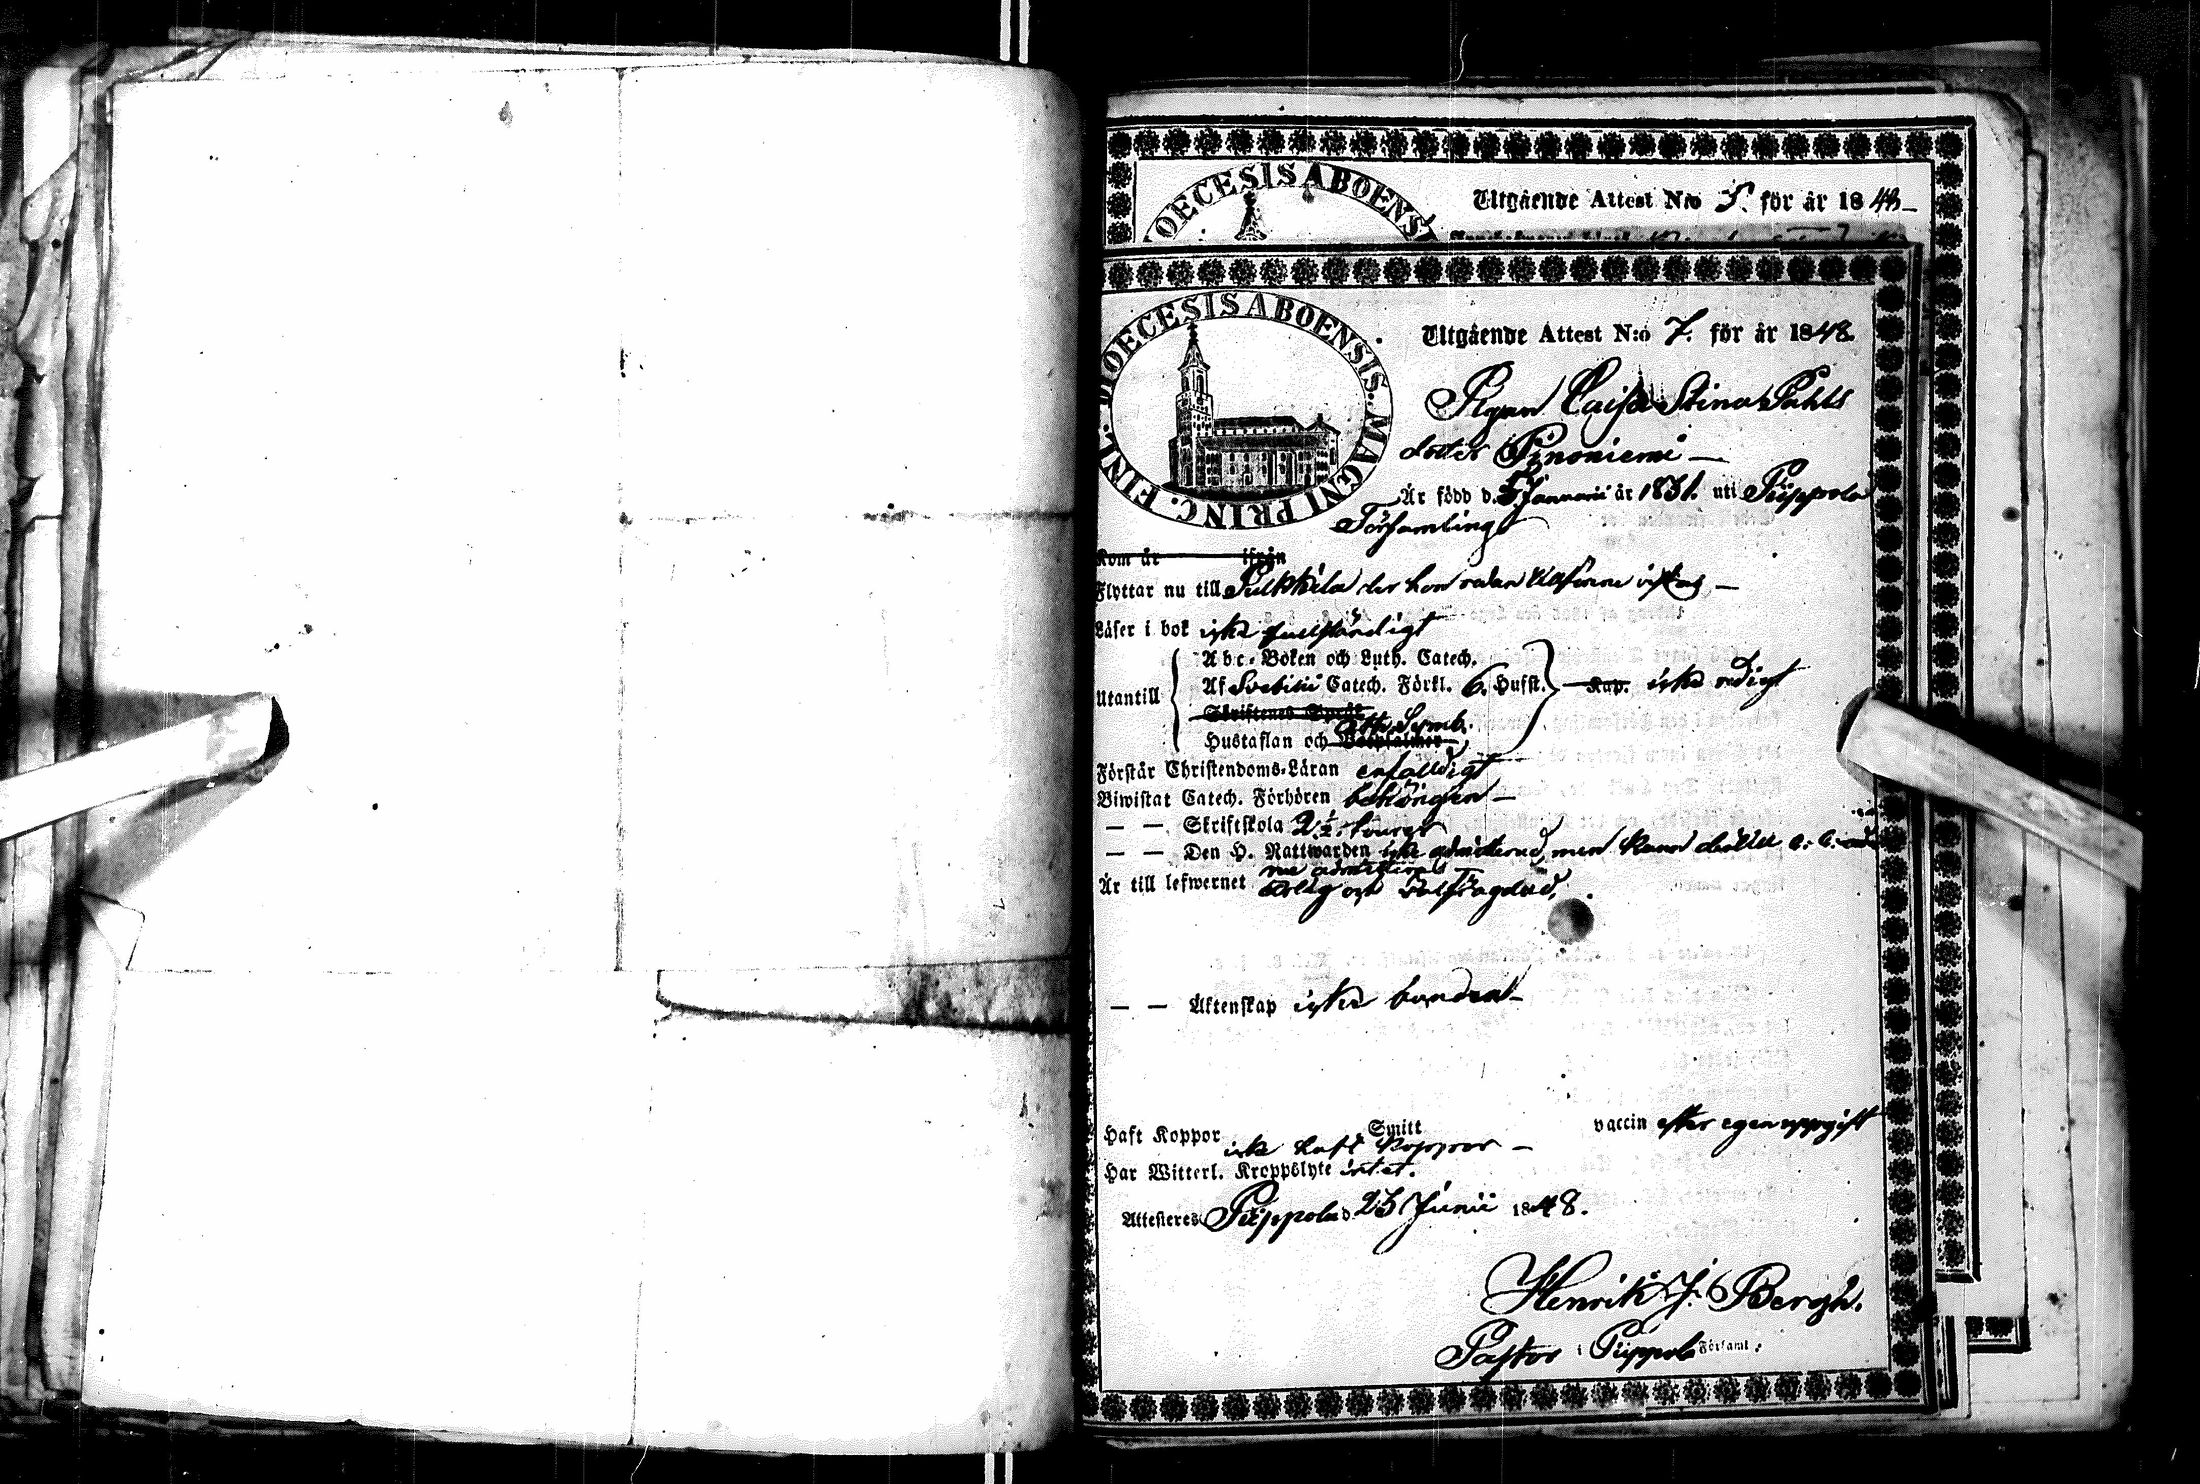 DIOECESIS ABOENSIS
Utgående Attest N:o 5. för år 1848
DIOECESIS ABOENSIS. MAGNI PRINC. FINL.
Utgående Attest N:o 7. för år 1848.
Pigan Caisa Stina Pahls
dotter Pinoniemi —
Är född d. 5 Januarii år 1831. uti Piippola
Församling
Kom år ifrån
Flyttar nu till Pulkkila der hon redan
Läser i bok icke fullständigt
Abc-Boken och Luth. Catech.
Utantill Af Svebilii Catech. Förkl. 6. Hufst. Kap. icke redigt
Skriftenes Språk
Ath. Symb.
Hustaflan och Botpsalmer
Förstår Christendoms-Läran enfaldigt
Biwistat Catech. Förhören behörigen —
— — Skriftskola 2½ kurser
— — Den H. Nattwarden icke admitterad, men kann
admitteras
Är till lefwernet ärlig och
— — Äktenskap icke bunden —
Haft Koppor Smitt vaccin efter egen uppgift
icke haft koppor —
Har Witterl. Kroppslyte intet.
Attesteres Piippola d. 25 Junii 1848.
Henrik J. Bergh.
Pastor i Piippola Församl.